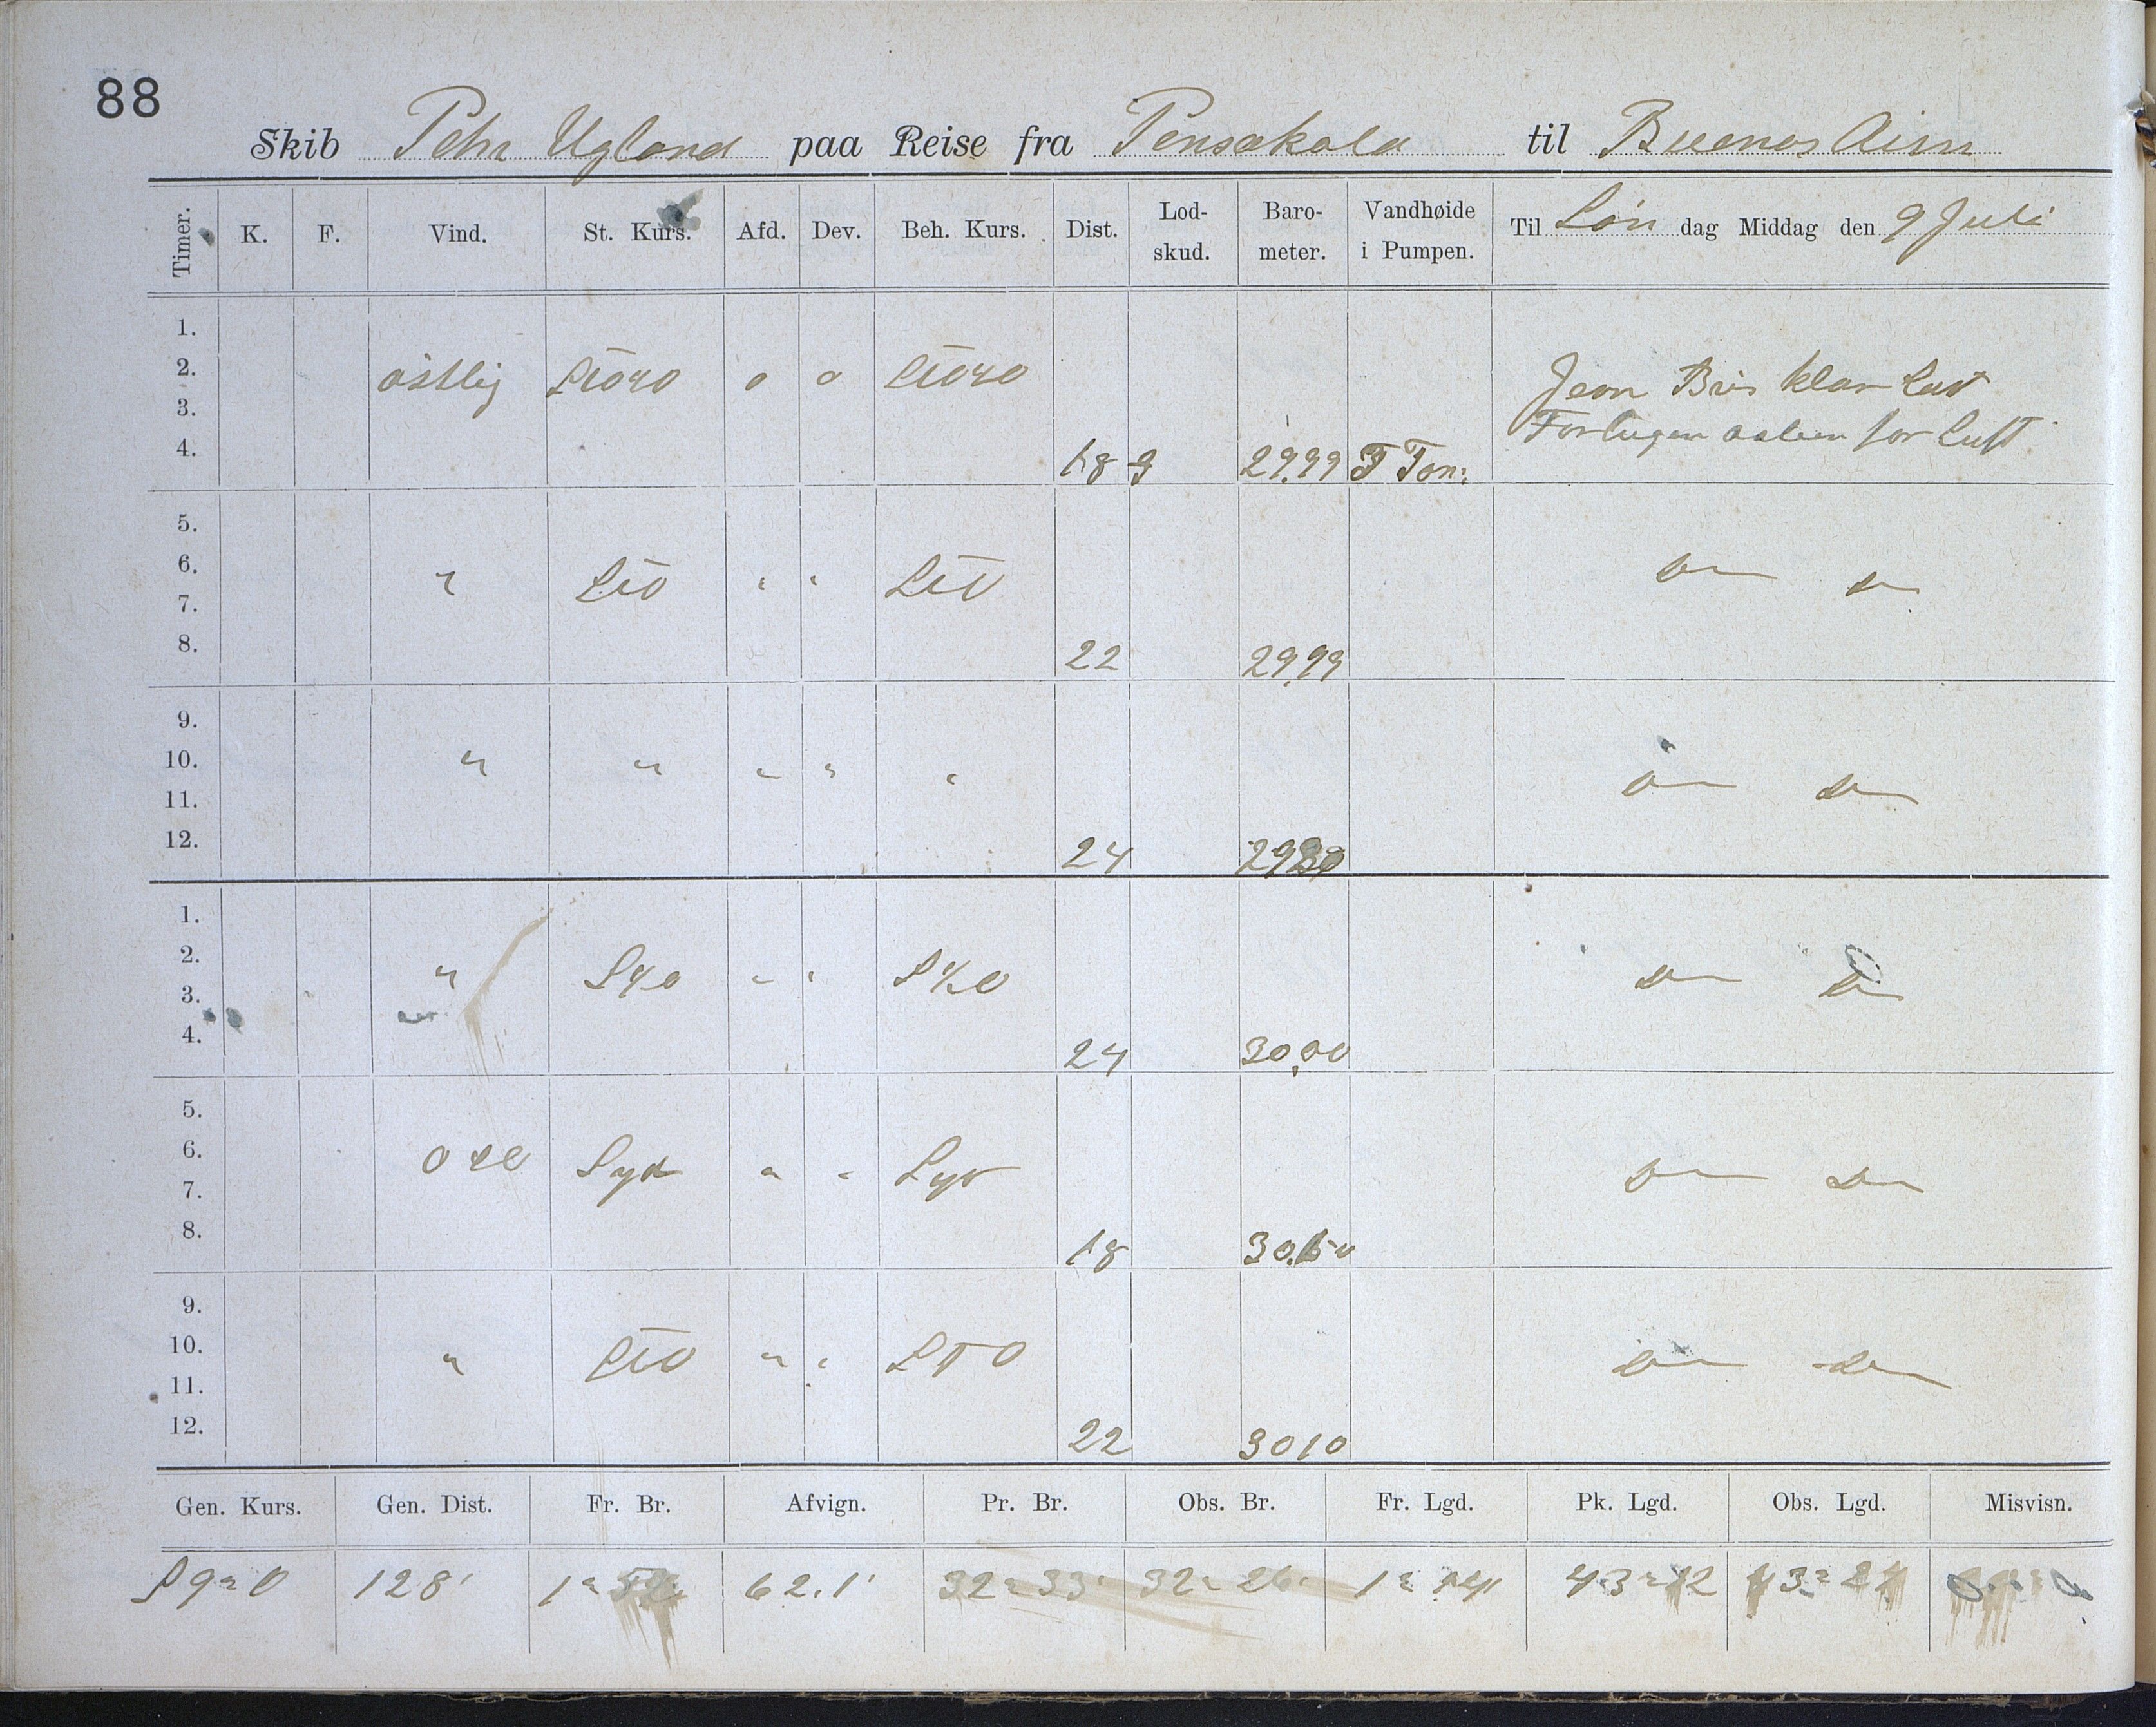 88
Skib Pehr Ugland paa Reise fra Pensakola til Buenos Aires
Timer. K. F. Vind. St. Kurs. Afd. Dev. Beh. Kurs. Dist. Lod-skud. Baro-meter. Vandhøide i Pumpen. Til Løn dag Middag den 9 Juli
1.
2. östlig o o Jevn Bris klar Luft
3.
4. 18 29.99 Ton: for Luft
5.
6. " StO " " StO Do Do
7.
8. 22 29.99
9.
10. " " " " " Do Do
11.
12. 24
1.
2. " " " Do Do
3.
4. 24 30,00
5.
6. Syd " " Syd Do Do
7.
8. 18
9.
10. " StO " " StO Do Do
11.
12. 22 3010
Gen. Kurs. Gen. Dist. Fr. Br. Afvign. Pr. Br. Obs. Br. Fr. Lgd. Pk. Lgd. Obs. Lgd. Misvisn.
S 9° O 128' 62.1' 32° 33' 32° 26' 1° 14 43° 12